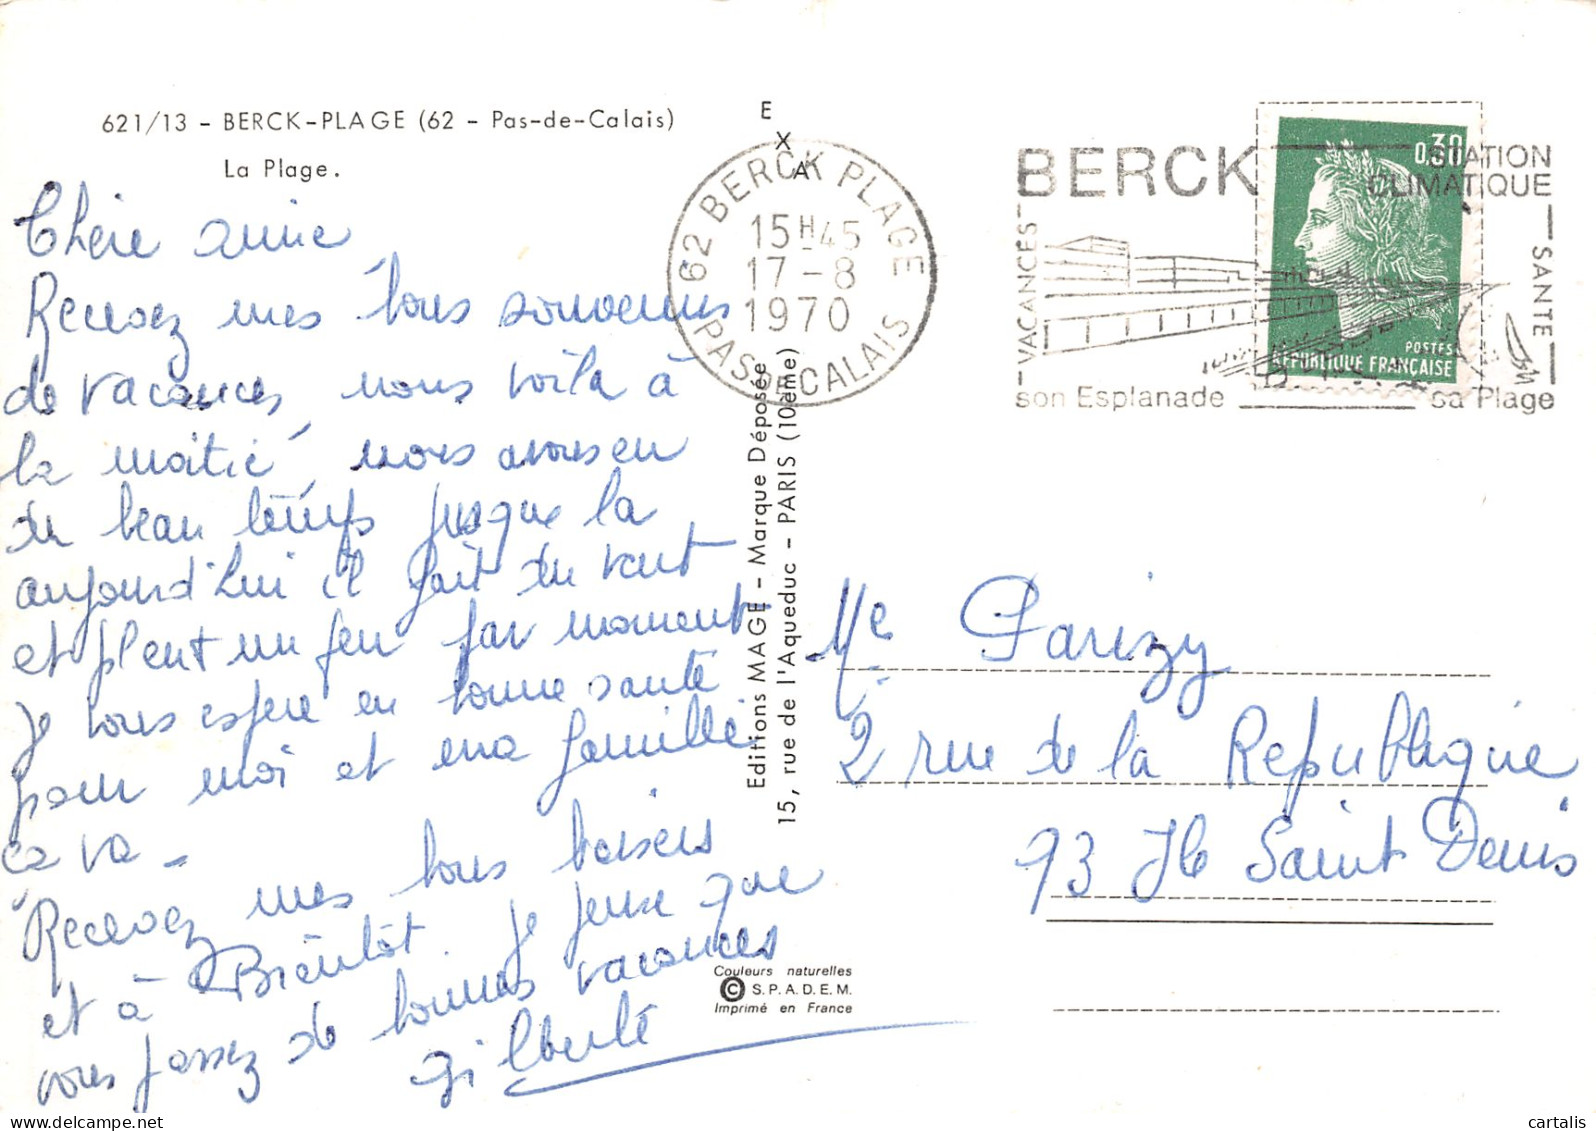 621/13 - BERCK-PLAGE (62 - Pas-de-Calais)
La Plage.
Chère amie
Recevez mes bons souvenirs
de vacances, nous voila à
la moitié, nous avons eu
du beau temps jusque la
aujourd'hui il fait du vent
et pleut un peu par moment
Je vous espère en bonne santé
pour moi et ma famille
ca va -
Recevez mes bons baisers
et à Bientôt. Je pense que
vous passez de bonnes vacances
Gilberte
E
X
A
62 BERCK PLAGE
15H45
17-8
1970
PAS DE CALAIS
Editions MAGE - Marque Déposée
15, rue de l'Aqueduc - PARIS (10ème)
BERCK
STATION
CLIMATIQUE
VACANCES
SANTE
son Esplanade
sa Plage
0,30
POSTES
REPUBLIQUE FRANCAISE
Me Parizy
2 rue de la Republique
93 Ile Saint Denis
Couleurs naturelles
© S.P.A.D.E.M.
Imprimé en France
www.delcampe.net
cartalis